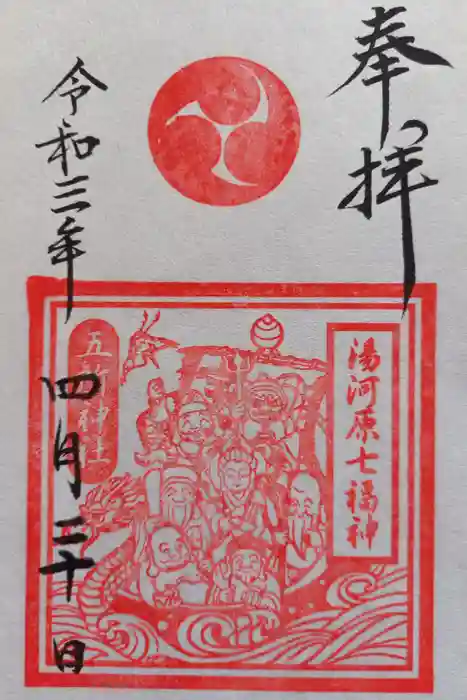 奉拝
湯河原七福神
五所神社
令和三年
四月二十日